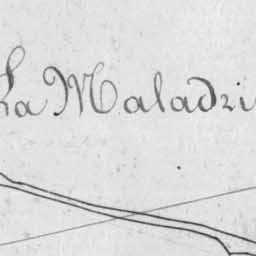 La Maladri